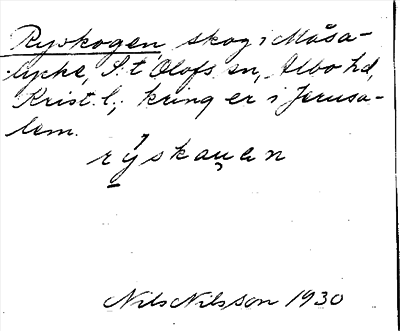 Ryskogen, skog i Måsa-
lycke, S:t Olofs sn, Albo hd,
Krist. l., kring er i Jerusa-
lem.
rýskau̯en
Nils Nilsson 1930